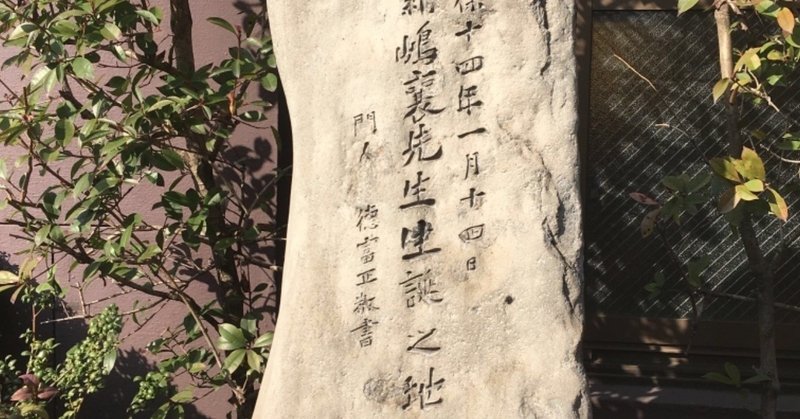 保十四年一月十四日
新嶋襄先生生誕之地
門人 徳富正敬書